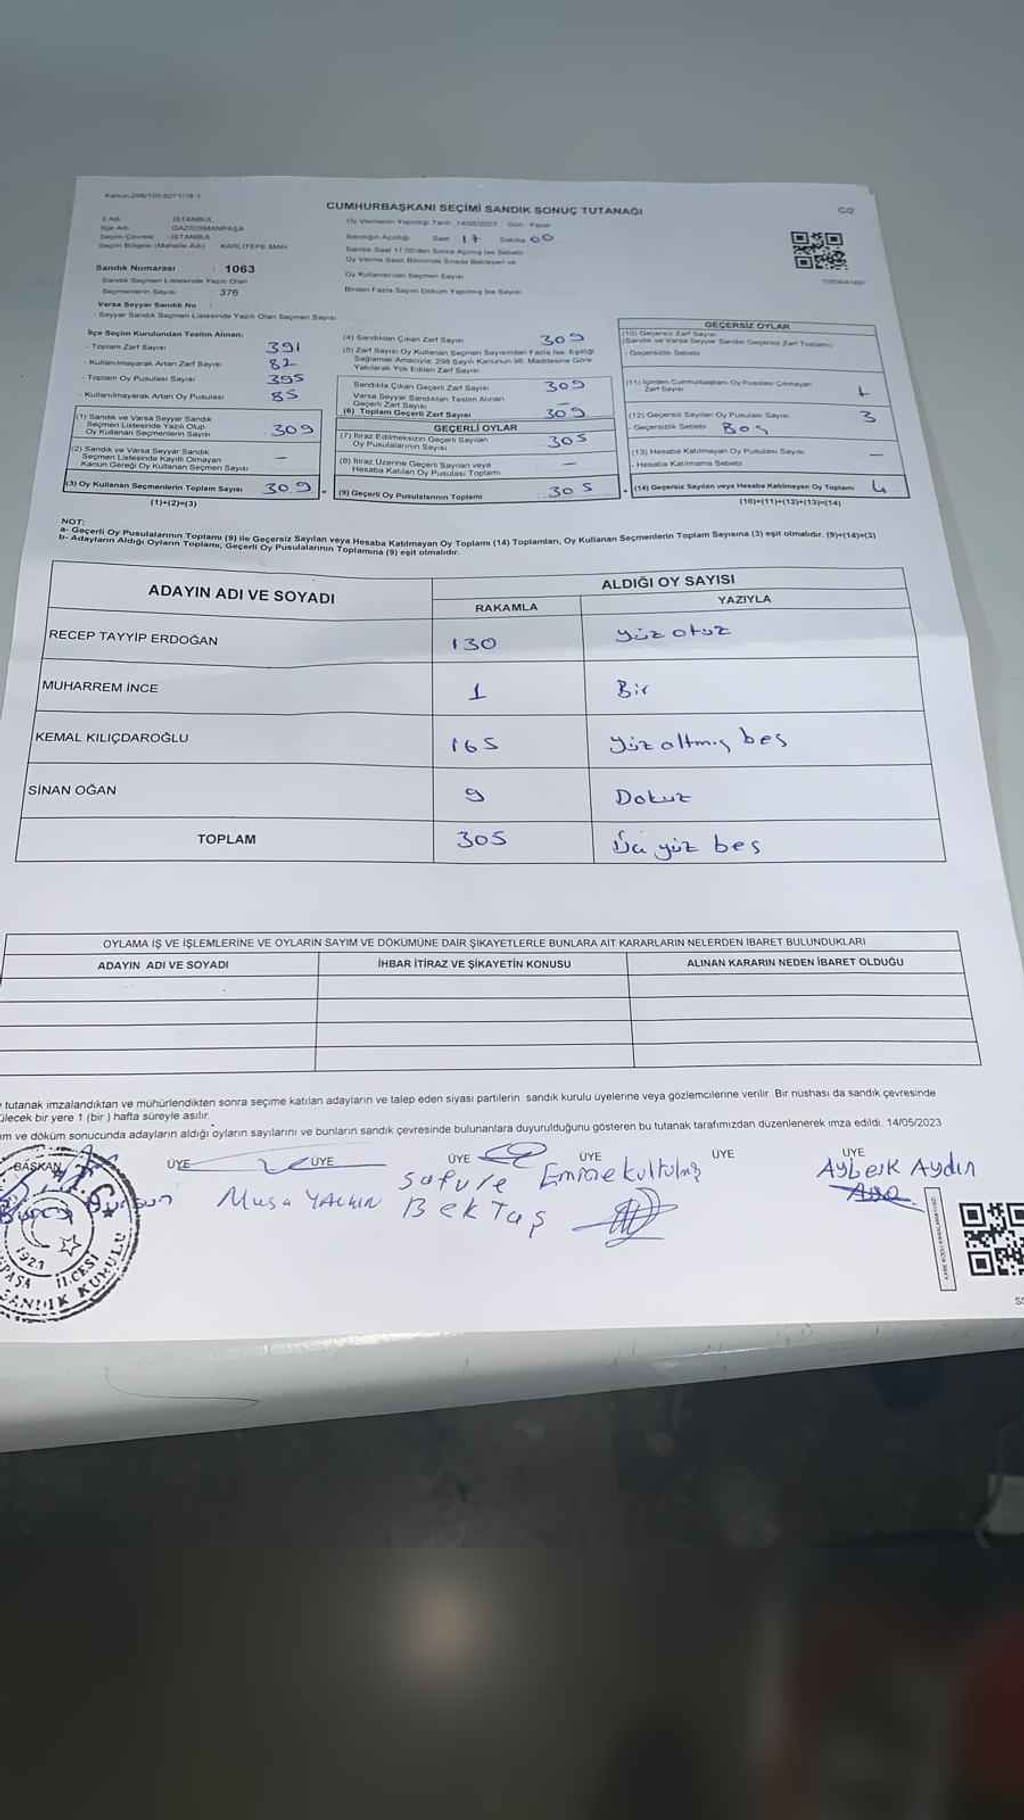 CUMHURBAŞKANI SEÇİMİ SANDIK SONUÇ TUTANAĞI
İSTANBUL
GAZİOSMANPAŞA
İSTANBUL
KARLITEPE MAH.
Saat 17 Dakika 00
Sandık Numarası : 1063
Sandık Seçmen Listesinde Yazılı Olan
Seçmenlerin Sayısı : 376
Varsa Seyyar Sandık No :
Seyyar Sandık Seçmen Listesinde Yazılı Olan Seçmen Sayısı
Oy Kullanamayan Seçmen Sayısı
İlçe Seçim Kurulundan Teslim Alınan:
- Toplam Zarf Sayısı 391
- Kullanılmayarak Artan Zarf Sayısı 82
- Toplam Oy Pusulası Sayısı 395
- Kullanılmayarak Artan Oy Pusulası 85
(1) Sandık ve Varsa Seyyar Sandık
Seçmen Listesinde Yazılı Olup
Oy Kullanan Seçmenlerin Sayısı 309
(2) Sandık ve Varsa Seyyar Sandık
Seçmen Listesinde Kayıtlı Olmayan
Kanun Gereği Oy Kullanan Seçmen Sayısı –
(3) Oy Kullanan Seçmenlerin Toplam Sayısı 309
(1)+(2)=(3)
(4) Sandıktan Çıkan Zarf Sayısı 309
(5) Zarf Sayısı Oy Kullanan Seçmen Sayısından Fazla İse, Eşitliği
Sağlamak Amacıyla, 298 Sayılı Kanunun 98. Maddesine Göre
Yakılarak Yok Edilen Zarf Sayısı –
Sandıkta Çıkan Geçerli Zarf Sayısı 309
Varsa Seyyar Sandıktan Teslim Alınan
Geçerli Zarf Sayısı –
(6) Toplam Geçerli Zarf Sayısı 309
GEÇERLİ OYLAR
(7) İtiraz Edilmeksizin Geçerli Sayılan
Oy Pusulalarının Sayısı 305
(8) İtiraz Üzerine Geçerli Sayılan veya
Hesaba Katılan Oy Pusulası Toplamı –
(9) Geçerli Oy Pusulalarının Toplamı 305
GEÇERSİZ OYLAR
(10) Geçersiz Zarf Sayısı
(Sandık ve Varsa Seyyar Sandık Geçersiz Zarf Toplamı)
- Geçersizlik Sebebi
(11) İçinden Cumhurbaşkanı Oy Pusulası Çıkmayan
Zarf Sayısı 1
(12) Geçersiz Sayılan Oy Pusulası Sayısı 3
- Geçersizlik Sebebi Boş
(13) Hesaba Katılmayan Oy Pusulası Sayısı –
- Hesaba Katılmama Sebebi
(14) Geçersiz Sayılan veya Hesaba Katılmayan Oy Toplamı 4
(10)+(11)+(12)+(13)=(14)
NOT:
a- Geçerli Oy Pusulalarının Toplamı (9) ile Geçersiz Sayılan veya Hesaba Katılmayan Oy Toplamı (14) Toplamları, Oy Kullanan Seçmenlerin Toplam Sayısına (3) eşit olmalıdır. (9)+(14)=(3)
b- Adayların Aldığı Oyların Toplamı, Geçerli Oy Pusulalarının Toplamına (9) eşit olmalıdır.
ADAYIN ADI VE SOYADI
ALDIĞI OY SAYISI
RAKAMLA YAZIYLA
RECEP TAYYİP ERDOĞAN 130 yüz otuz
MUHARREM İNCE 1 Bir
KEMAL KILIÇDAROĞLU 165 yüz altmış beş
SİNAN OĞAN 9 Dokuz
TOPLAM 305 Üç yüz beş
OYLAMA İŞ VE İŞLEMLERİNE VE OYLARIN SAYIM VE DÖKÜMÜNE DAİR ŞİKAYETLERLE BUNLARA AİT KARARLARIN NELERDEN İBARET BULUNDUKLARI
ADAYIN ADI VE SOYADI İHBAR İTİRAZ VE ŞİKAYETİN KONUSU ALINAN KARARIN NEDEN İBARET OLDUĞU
tutanak imzalandıktan ve mühürlendikten sonra seçime katılan adayların ve talep eden siyasi partilerin sandık kurulu üyelerine veya gözlemcilerine verilir. Bir nüshası da sandık çevresinde
bir yere 1 (bir) hafta süreyle asılır.
ve döküm sonucunda adayların aldığı oyların sayılarını ve bunların sandık çevresinde bulunanlara duyurulduğunu gösteren bu tutanak tarafımızdan düzenlenerek imza edildi. 14/05/2023
BAŞKAN ÜYE ÜYE ÜYE ÜYE ÜYE ÜYE
Musa YALKIN Safure Bektaş Emine kurtulmuş Ayberk Aydın
1921
İLÇESİ
SANDIK KURULU